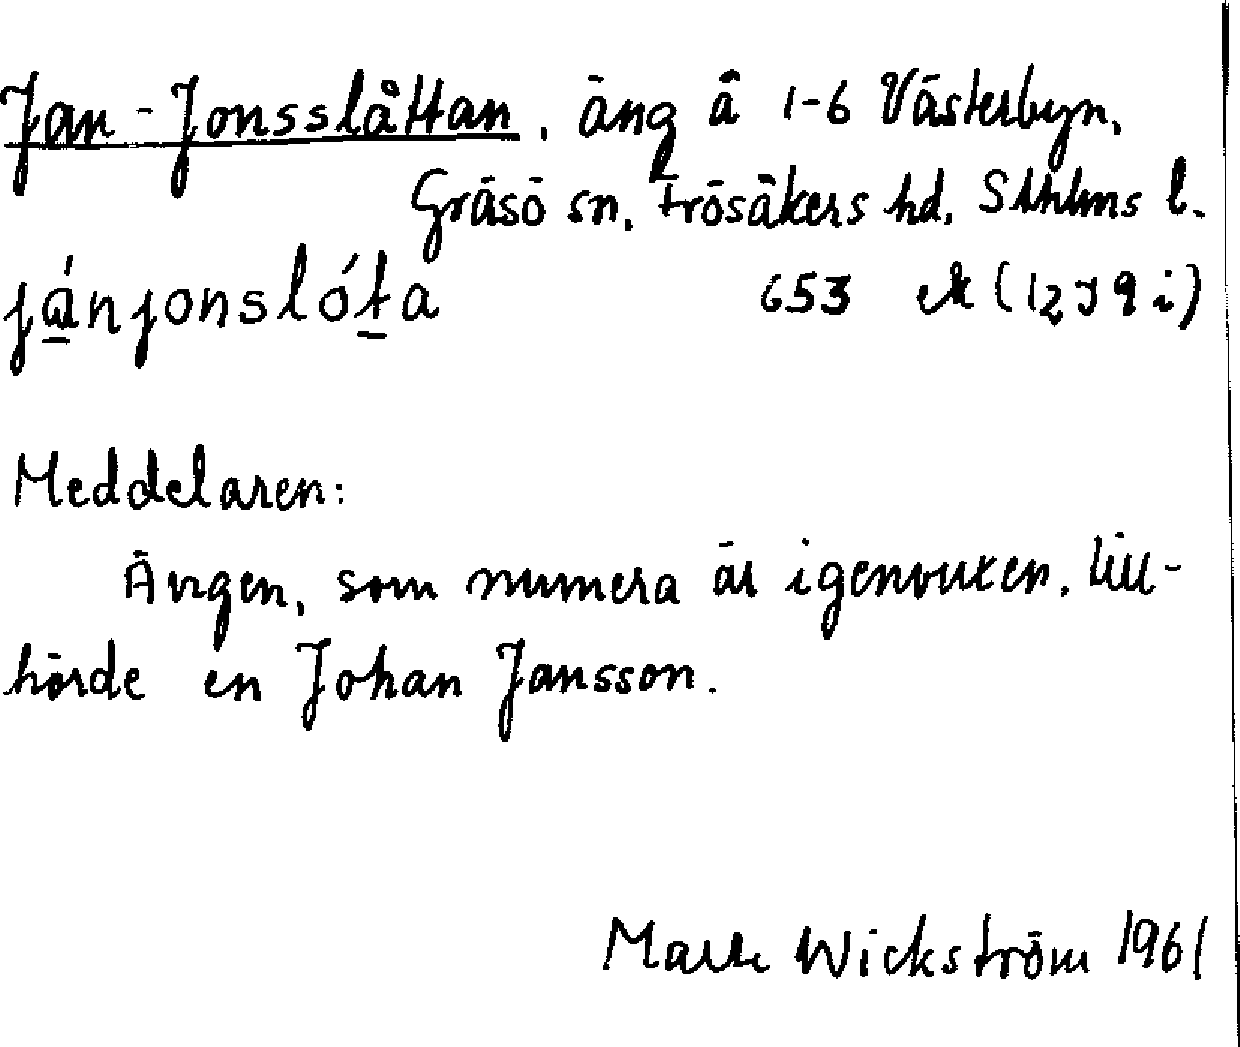 Jan-Jonsslåttan, äng å 1-6 Västerbyn,
Gräsö sn, Frösåkers hd, Sthlms l.
jánjonslóta 653 ek (12 J 9 i)
Meddelaren:
Ängen, som numera är igenvuxen, till-
hörde en Johan Jansson.
Wickström 1961